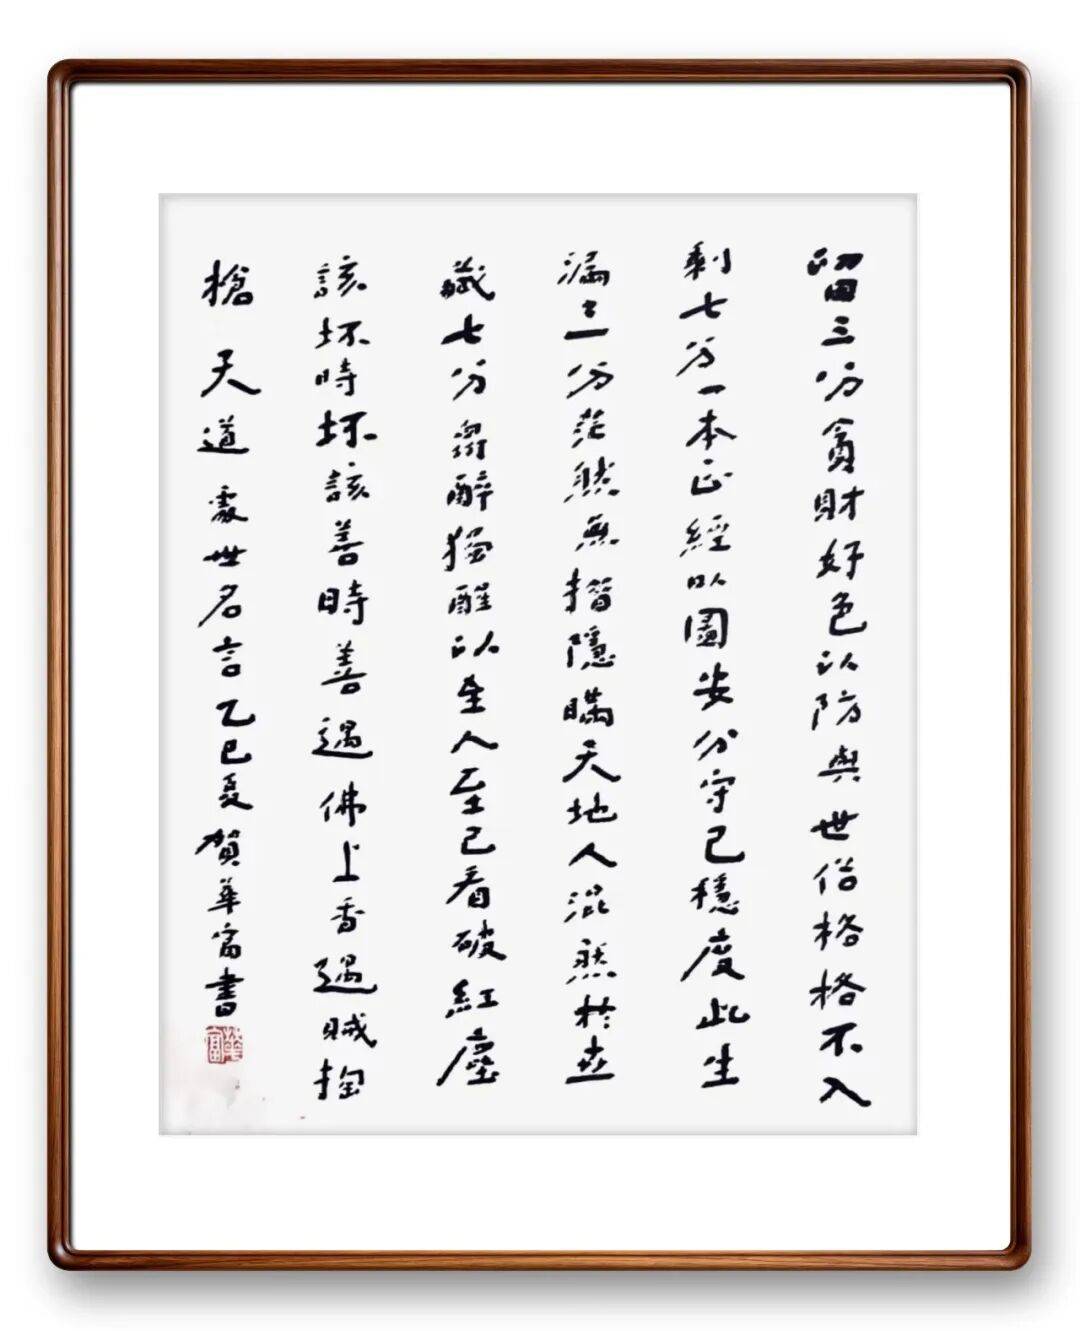 留三分貪財好色以防與世俗格格不入
剩七分一本正經以圖安分守己穩度此生
漏三分茫然無措隱瞞天地人混然於世
藏七分眾醉獨醒以至人至己看破紅塵
該坏時坏該善時善遇佛上香遇賊掏
槍 天道處世名言乙巳夏賀華富書
華富